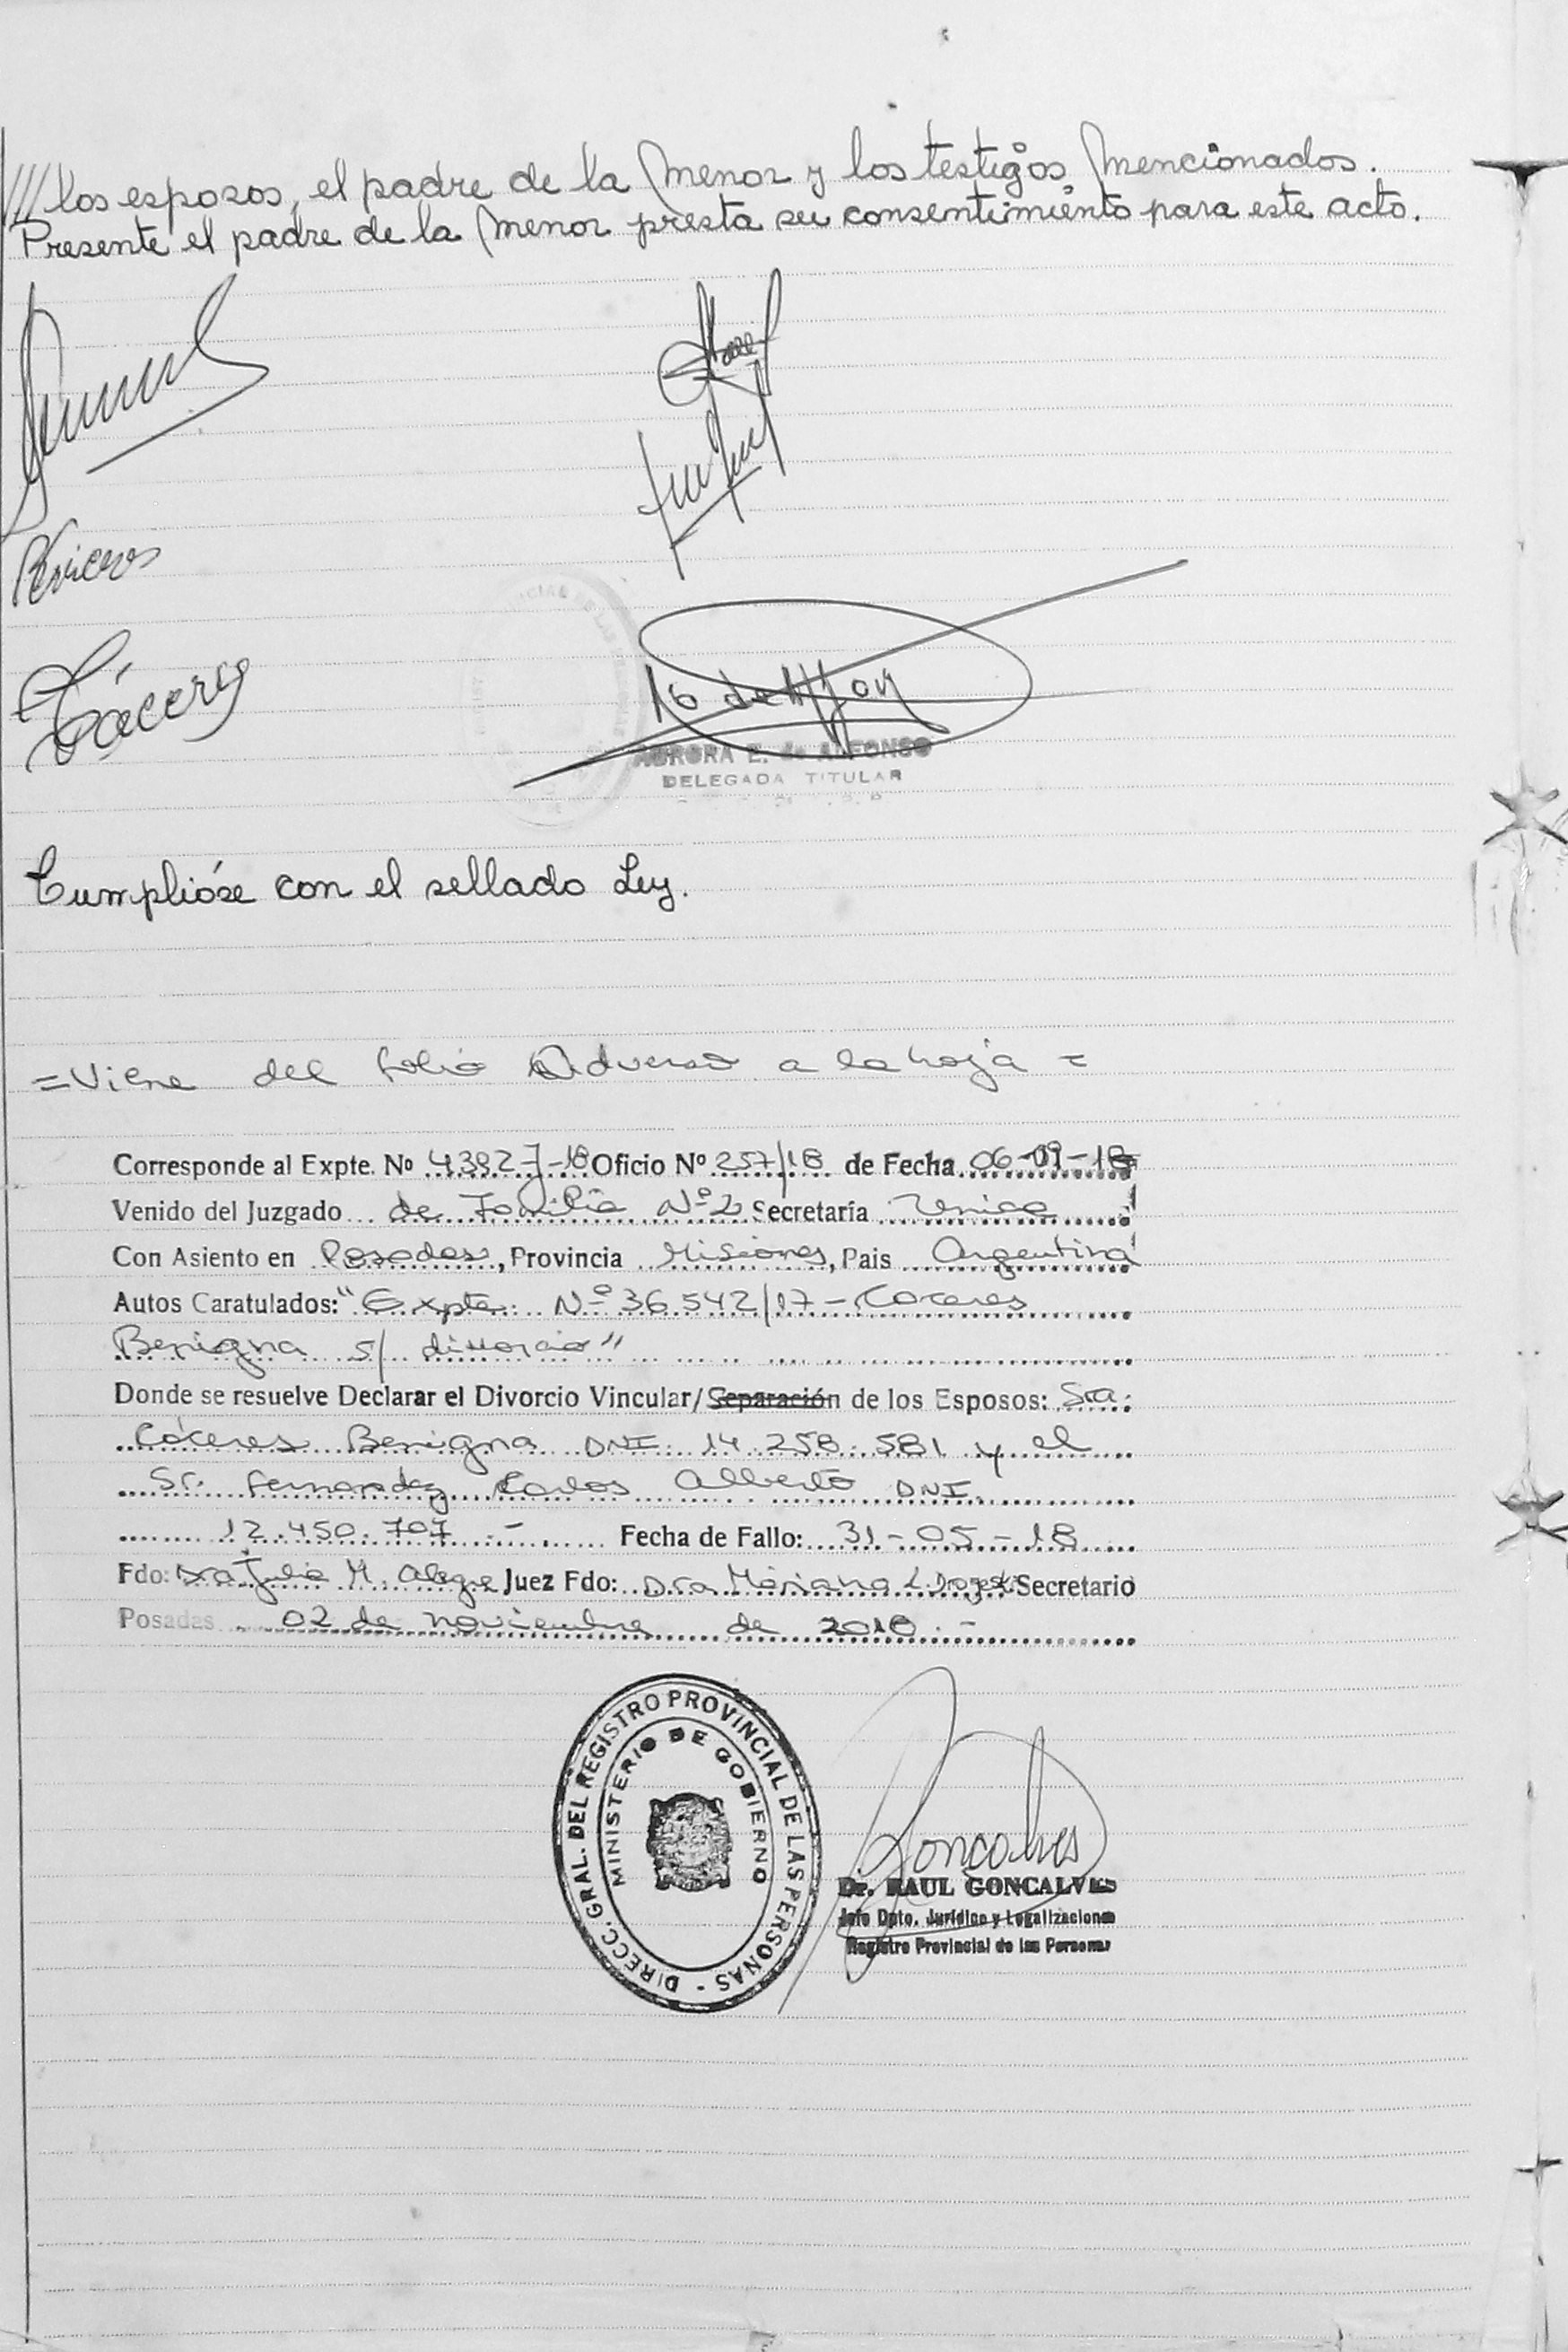 /// los esposos, el padre de la Menor y los testigos Mencionados.
Presente el padre de la Menor presta su consentimiento para este acto.
Cáceres
16 de
AURORA E. de ALFONSO
DELEGADA TITULAR
Cumplióse con el sellado Ley.
= Viene del folio Adverso a la hoja =
Corresponde al Expte. Nº 43827-18 Oficio Nº 257/18 de Fecha 06-09-18
Venido del Juzgado de Familia Nº 2 Secretaría Unica
Con Asiento en Posadas, Provincia Misiones, Pais Argentina
Autos Caratulados: "Expte. Nº 36542/17 - Caceres
Benigna s/ divorcio"
Donde se resuelve Declarar el Divorcio Vincular/Separación de los Esposos: Sra.
Cáceres Benigna DNI 14.258.581 y el
Sr. Fernandez Carlos Alberto DNI
12.450.707.- Fecha de Fallo: 31-05-18
Fdo: Dra Julia M. Alegre Juez Fdo: Dra Mariana L. Secretario
Posadas 02 de noviembre de 2018.-
DIRECC. GRAL. DEL REGISTRO PROVINCIAL DE LAS PERSONAS -
MINISTERIO DE GOBIERNO
Goncalves
Dr. RAUL GONCALVES
Jefe Dpto. Jurídico y Legalizaciones
Registro Provincial de las Personas